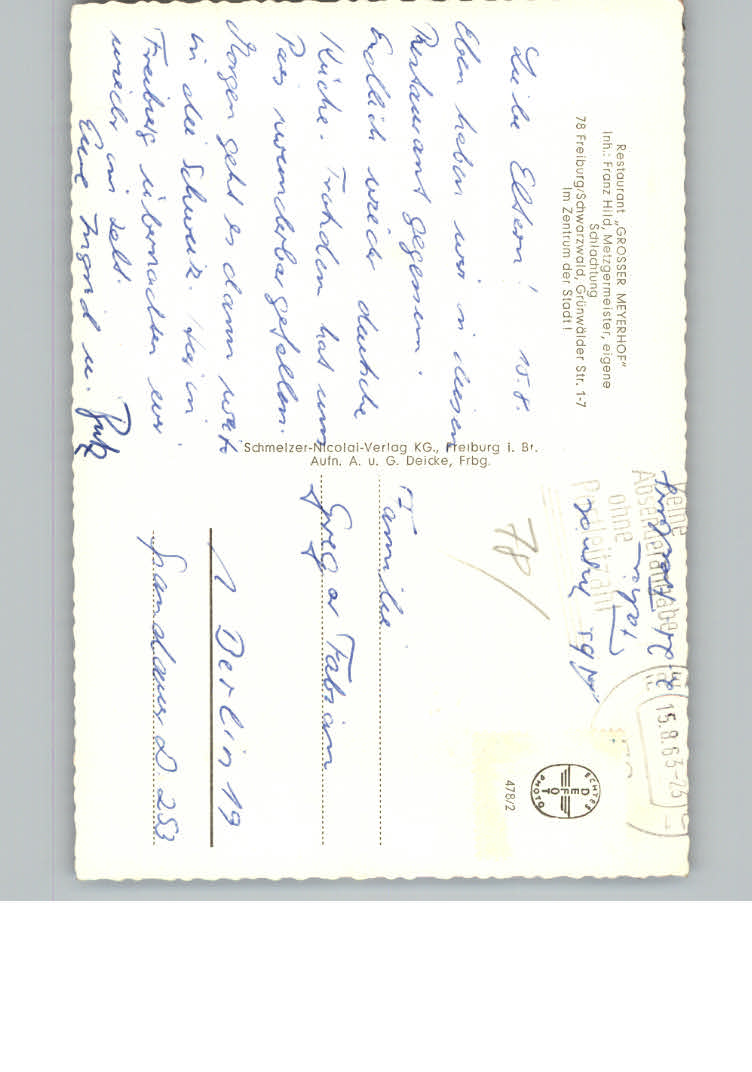 Restaurant „GROSSER MEYERHOF"
Inh.: Franz Hild, Metzgermeister, eigene
Schlachtung
78 Freiburg/Schwarzwald, Grünwälder Str. 1-7
Im Zentrum der Stadt!
Liebe Eltern! 15.8.
Eben haben wir in diesem
Restaurant gegessen.
Endlich wieder deutsche
Küche. Trotzdem hat uns
Paris wunderbar gefallen.
Morgen geht es dann weiter
in die Schweiz. Hier in
Freiburg übernachten wir
wieder im Zelt.
Eure Ingrid u.
Schmelzer-Nicolai-Verlag KG., Freiburg i. Br.
Aufn. A. u. G. Deicke, Frbg.
Keine
Absenderangabe
ohne
Postleitzahl
15.8.63-23
78/
ECHTES
DEFOT
PHOTO
478/2
Familie
Gregor Fabian
1 Berlin 19
Spandauer D. 253